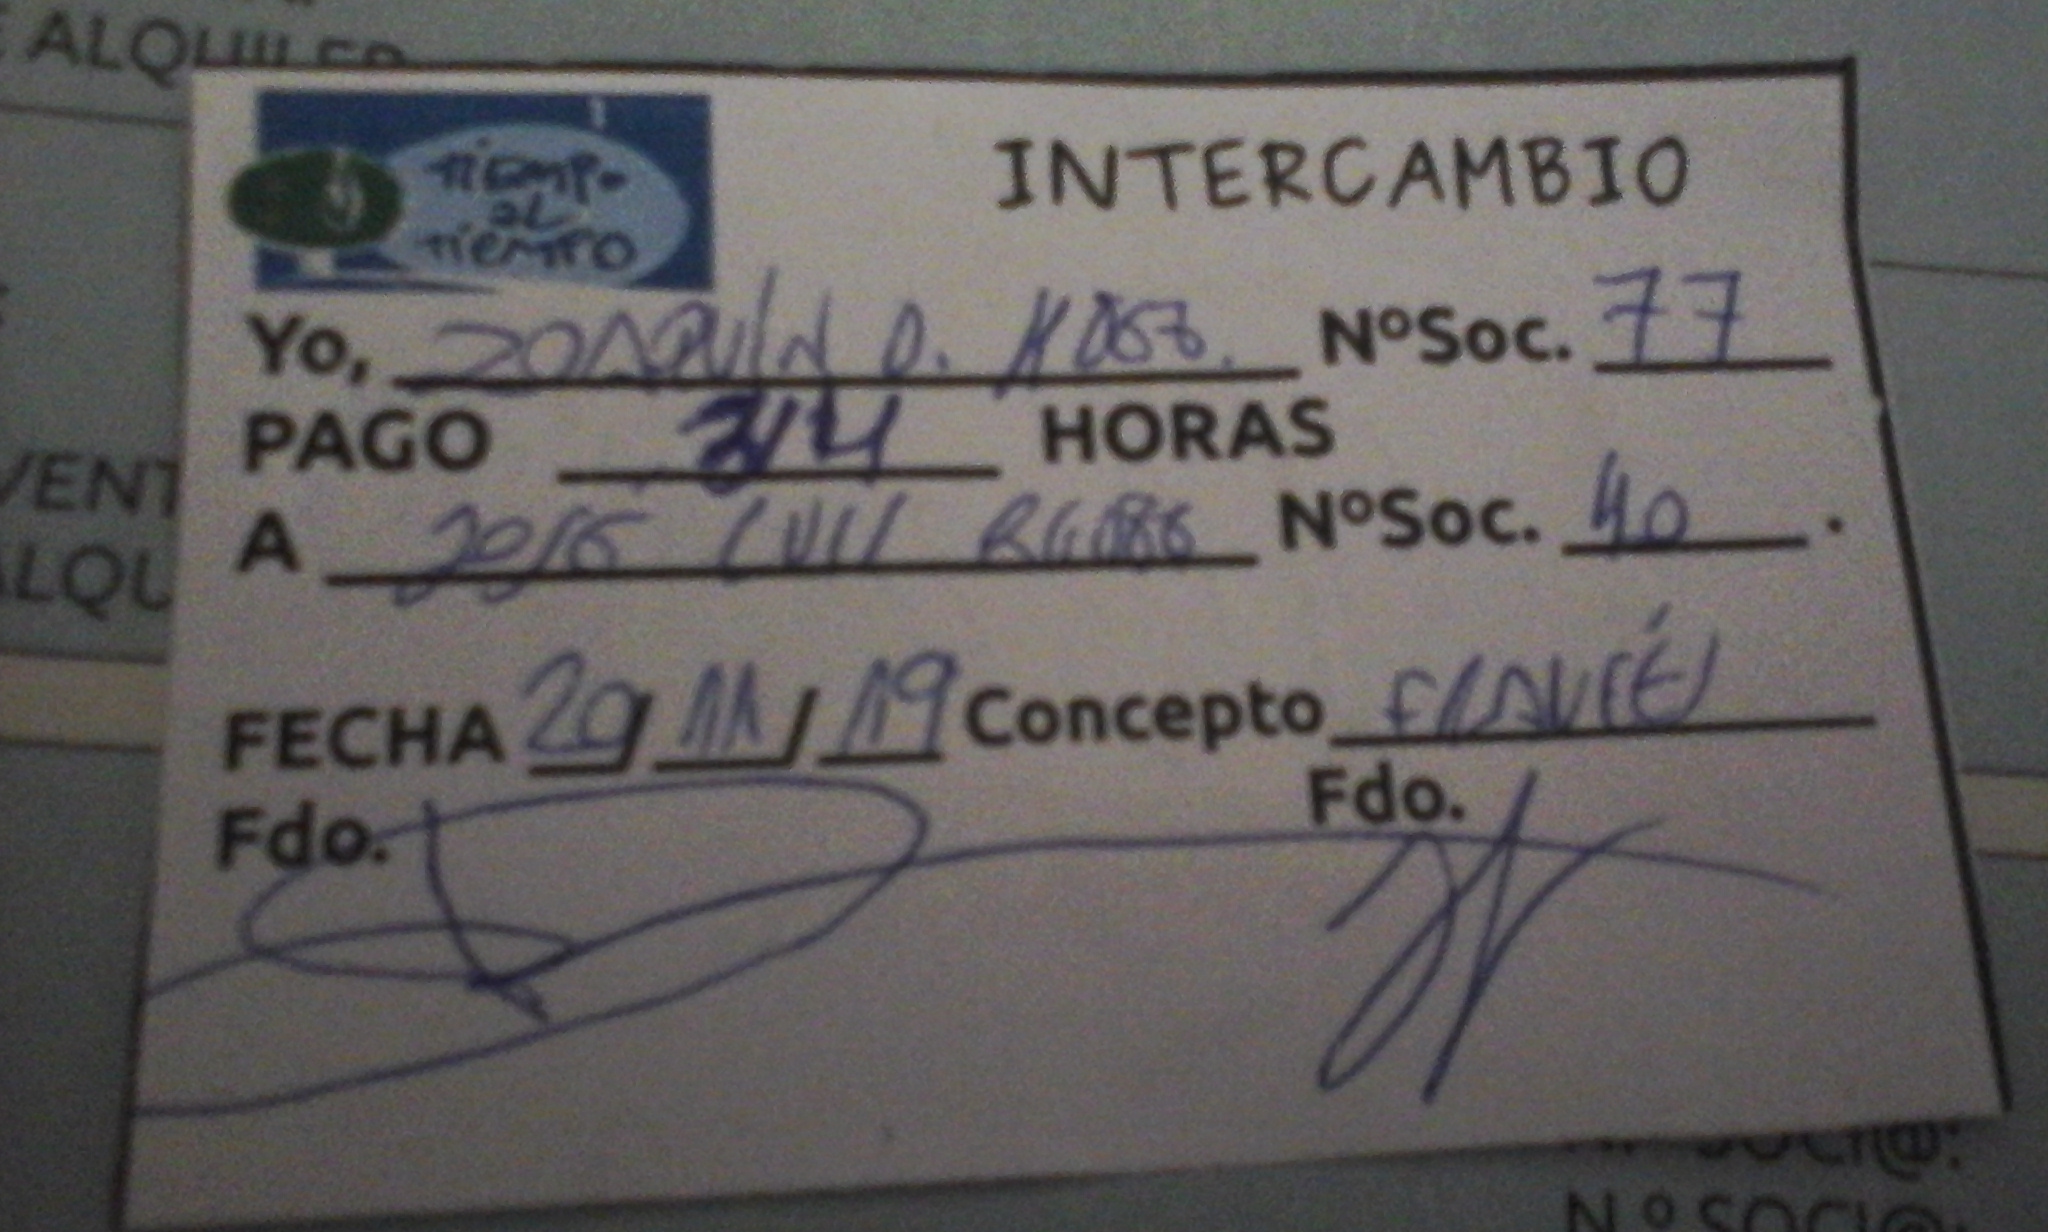 ALQUILER
TIEMPO
AL
TIEMPO
INTERCAMBIO
Yo, JOAQUÍN D. NºSoc. 77
PAGO 3/4 HORAS
A JOSE LUIS NºSoc. 40.
FECHA 29/11/19 Concepto
Fdo. Fdo.
VENT
ALQU
Nº SOCI@:
N.º SOCI@: